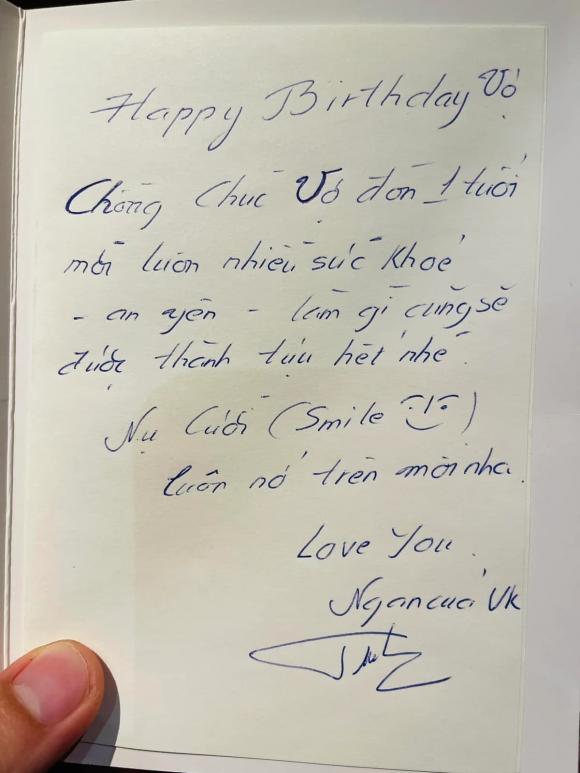 Happy Birthday Vợ
Chồng Chúc Vợ đón 1 tuổi
mới luôn nhiều sức khoẻ
- an yên - làm gì cũng sẽ
được thành tựu hết nhé.
Nụ Cười (Smile)
luôn nở trên môi nha.
Love You.
Ngân của Vk